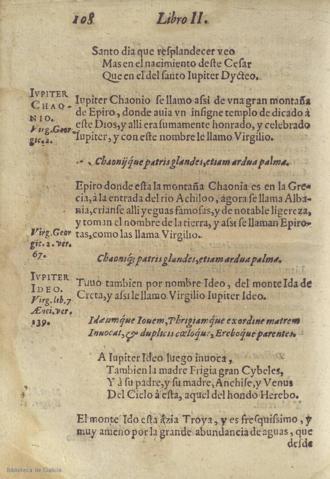 108 Libro II.
Santo dia que resplandecer veo
Mas en el nacimiento deste Cesar
Que en el del santo Iupiter Dycteo.
IVPITER
CHAO-
NIO.
Virg. Geor
gic. 2.
Iupiter Chaonio se llamo assi de vna gran montaña
de Epiro, donde auia vn insigne templo dedicado à
este Dios, y alli era sumamente honrado, y celebrado
Iupiter, y con este nombre le llamo Virgilio.
Chaonijque patris glandes, etiam ardua palma.
Epiro donde esta la montaña Chaonia es en la Gre-
cia, à la entrada del rio Achiloo, agora se llama Alba-
nia, crianse alli yeguas famosas, y de notable ligereza,
y toman el nombre de la tierra, y assi se llaman Epiro-
tas, como las llama Virgilio.
Virg. Geor
gic. 2. ver.
67.
Chaonijq; patris glandes, etiam ardua palma.
IVPITER
IDEO.
Virg. lib. 7
Ænei. ver.
139.
Tuuo tambien por nombre Ideo, del monte Ida de
Creta, y assi le llamo Virgilio Iupiter Ideo.
Idæumque Iouem, Phrigiamque ex ordine matrem
Inuocat, & duplicis cœloque, Ereboque parentes.
A Iupiter Ideo luego inuoca,
Tambien la madre Frigia gran Cybeles,
Y à su padre, y su madre, Anchise, y Venus
Del Cielo à esta, aquel del hondo Herebo.
El monte Ido esta àzia Troya, y es fresquissimo, y
muy ameno por la grande abundancia de aguas, que
desde
Biblioteca de Galicia